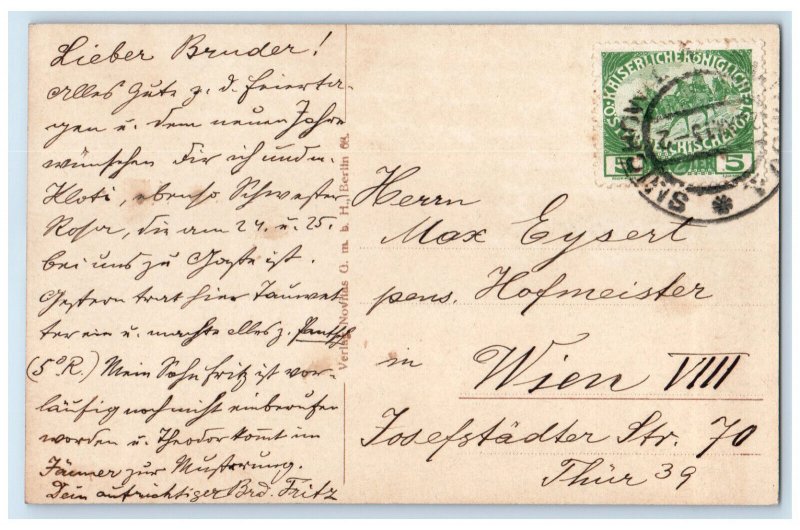 Lieber Bruder!
Alles Gute z. d. Feierta-
gen u. dem neuen Jahre
wünschen dir ich und m.
Kloti, ebenso Schwester
Rosa, die am 24. u. 25.
bei uns zu Gaste ist.
Gestern trat hier Tauwet-
ter ein u. machte alles z. Pantsch
(5°R.) Mein Sohn Fritz ist vor-
läufig noch nicht einberufen
worden u. Theodor kommt im
Jänner zur Musterung.
Dein aufrichtiger Brd. Fritz
Verlag Novitas G. m. b. H., Berlin 68.
KAISERLICHE KÖNIGLICHE
5 5
Herrn
Max Eysert
pens. Hofmeister
in Wien VIII
Josefstädter Str. 70
Thür 39